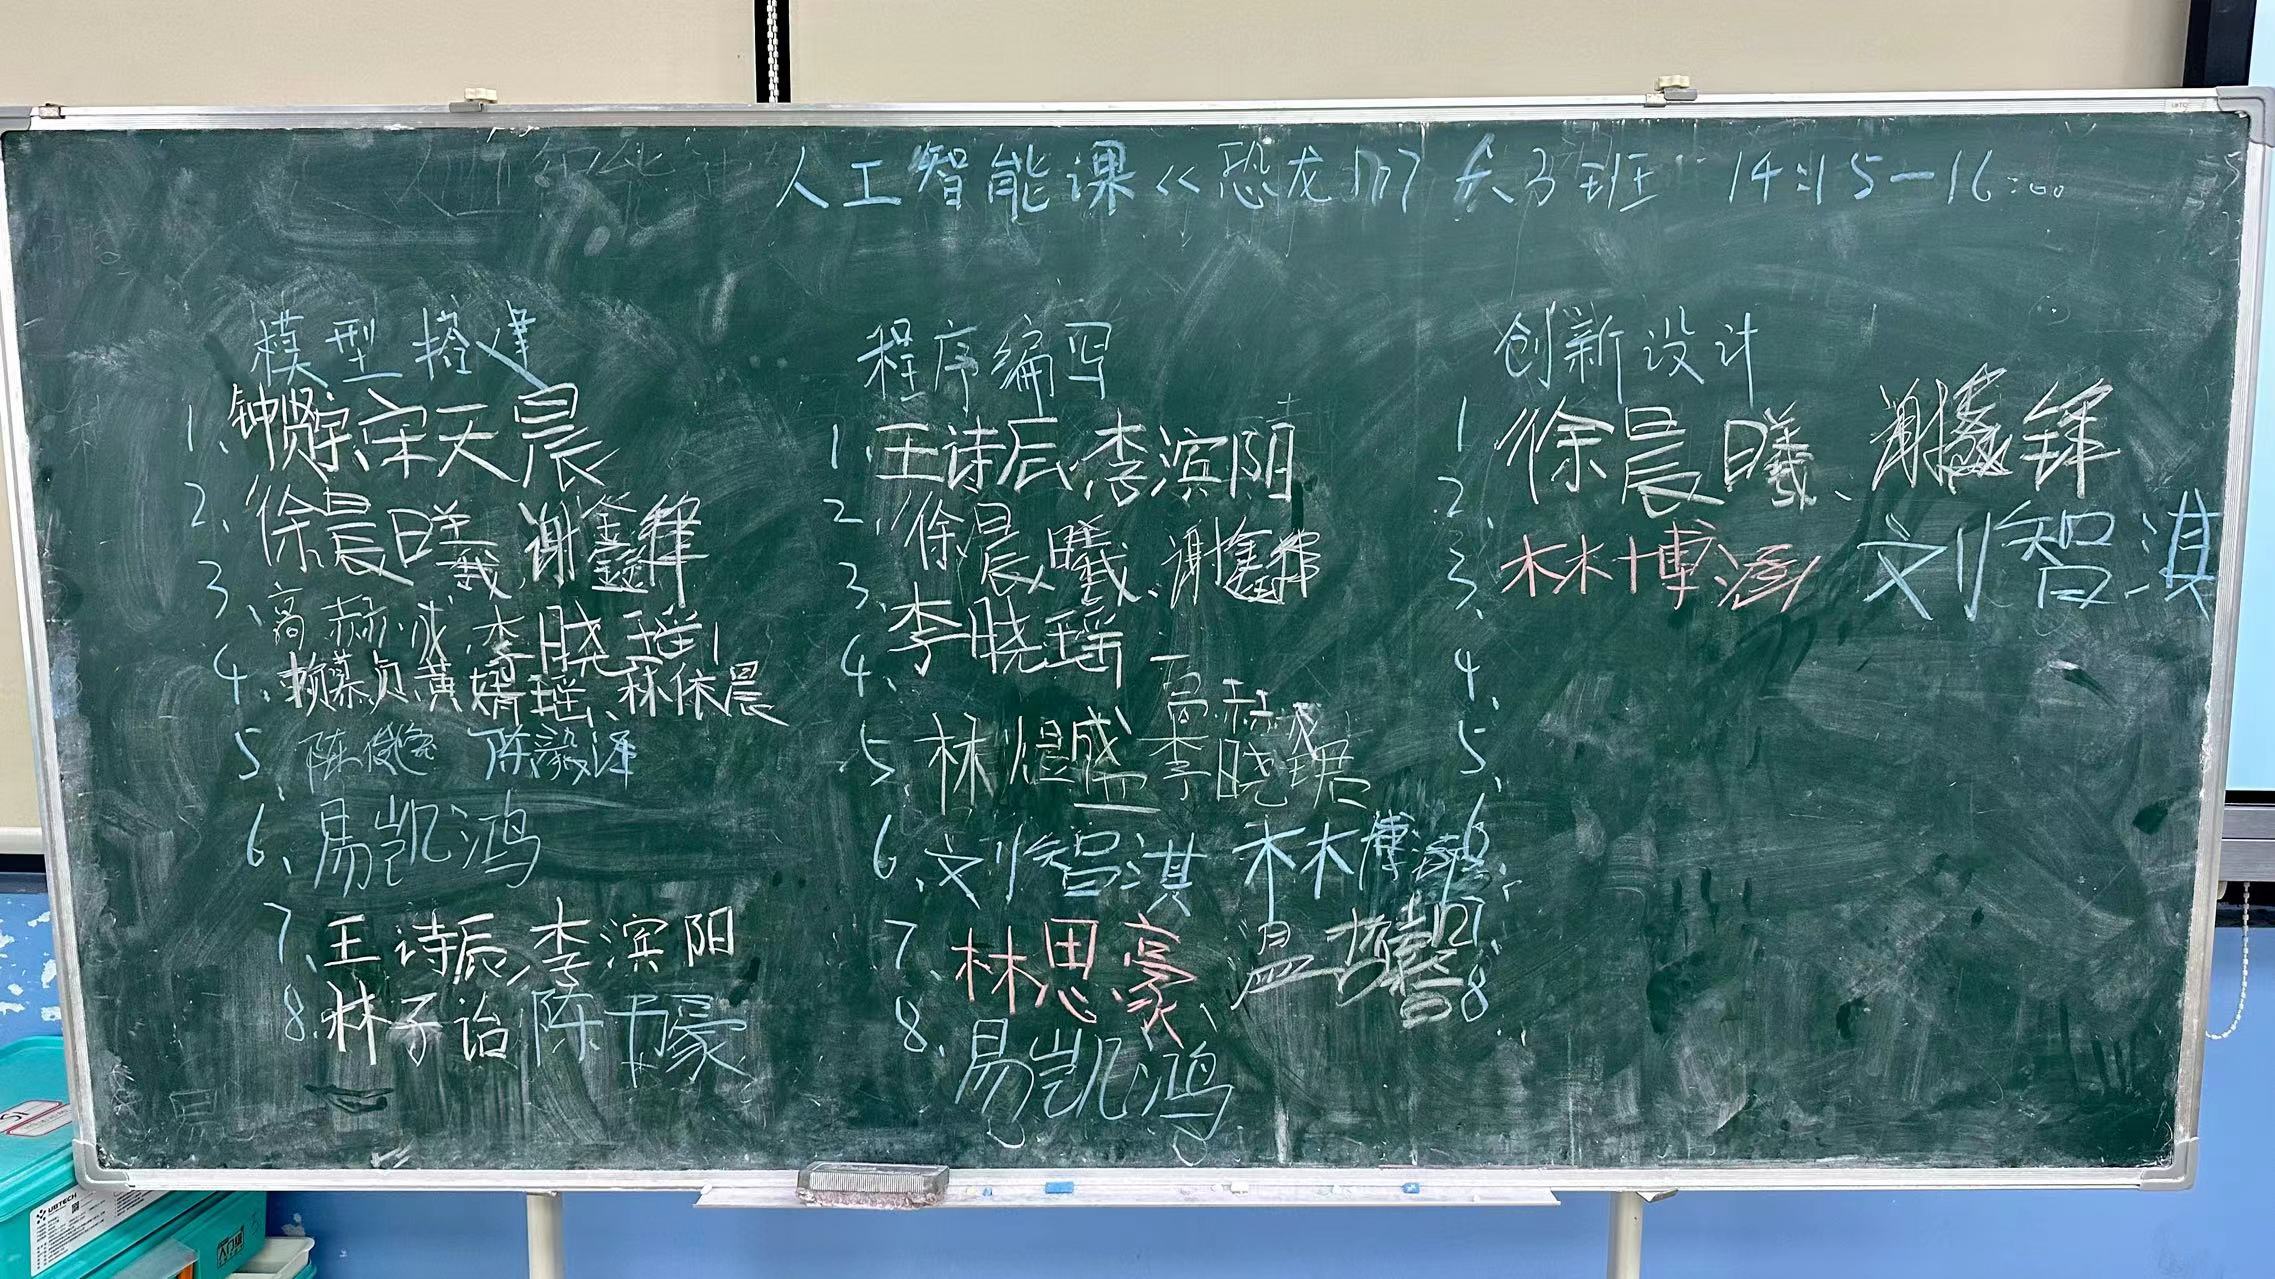 人工智能课《恐龙 3班 14:15-16:00
模型搭建
1、钟贤宗、宋天晨
2、徐晨曦、谢鑫锋
3、高赫成、李晓瑶
4、赖慕贞、黄婧瑶、林依晨
5、陈俊 陈毅泽
6、易凯鸿
7、王诗辰、李滨阳
8、林子诒 陈书豪
程序编写
1、王诗辰、李滨阳
2、徐晨曦、谢鑫锋
3、李晓瑶
4、高赫
5、林煜盛 李晓珺
6、刘智淇 林博
7、林思豪
8、易凯鸿
创新设计
1 徐晨曦、谢鑫锋
2、
3、林博 刘智淇
4、
5、
6、
7、
8、
UBTECH